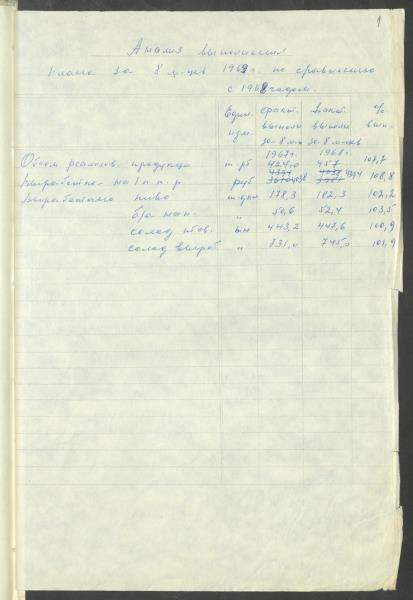 1
Анализ выполнения
плана за 8 м-цев 1969 г. по сравнению
с 1968 годом.
Един. изм. фактич. выполн. за 8 м-ц 1967 г. факт. выполн. за 8 м-цев 1968 г. % вып.
Объем реализов. продукции т. рб. 424,0 457 107,7
Выработка на 1 п.п.р. руб.  108,8
Выработано пиво т. дкл 178,3 182,3 102,2
б/а нап. " 50,6 52,4 103,5
солод тов. тн 443,2 447,6 100,9
солод выраб. " 731,0 745,0 101,9